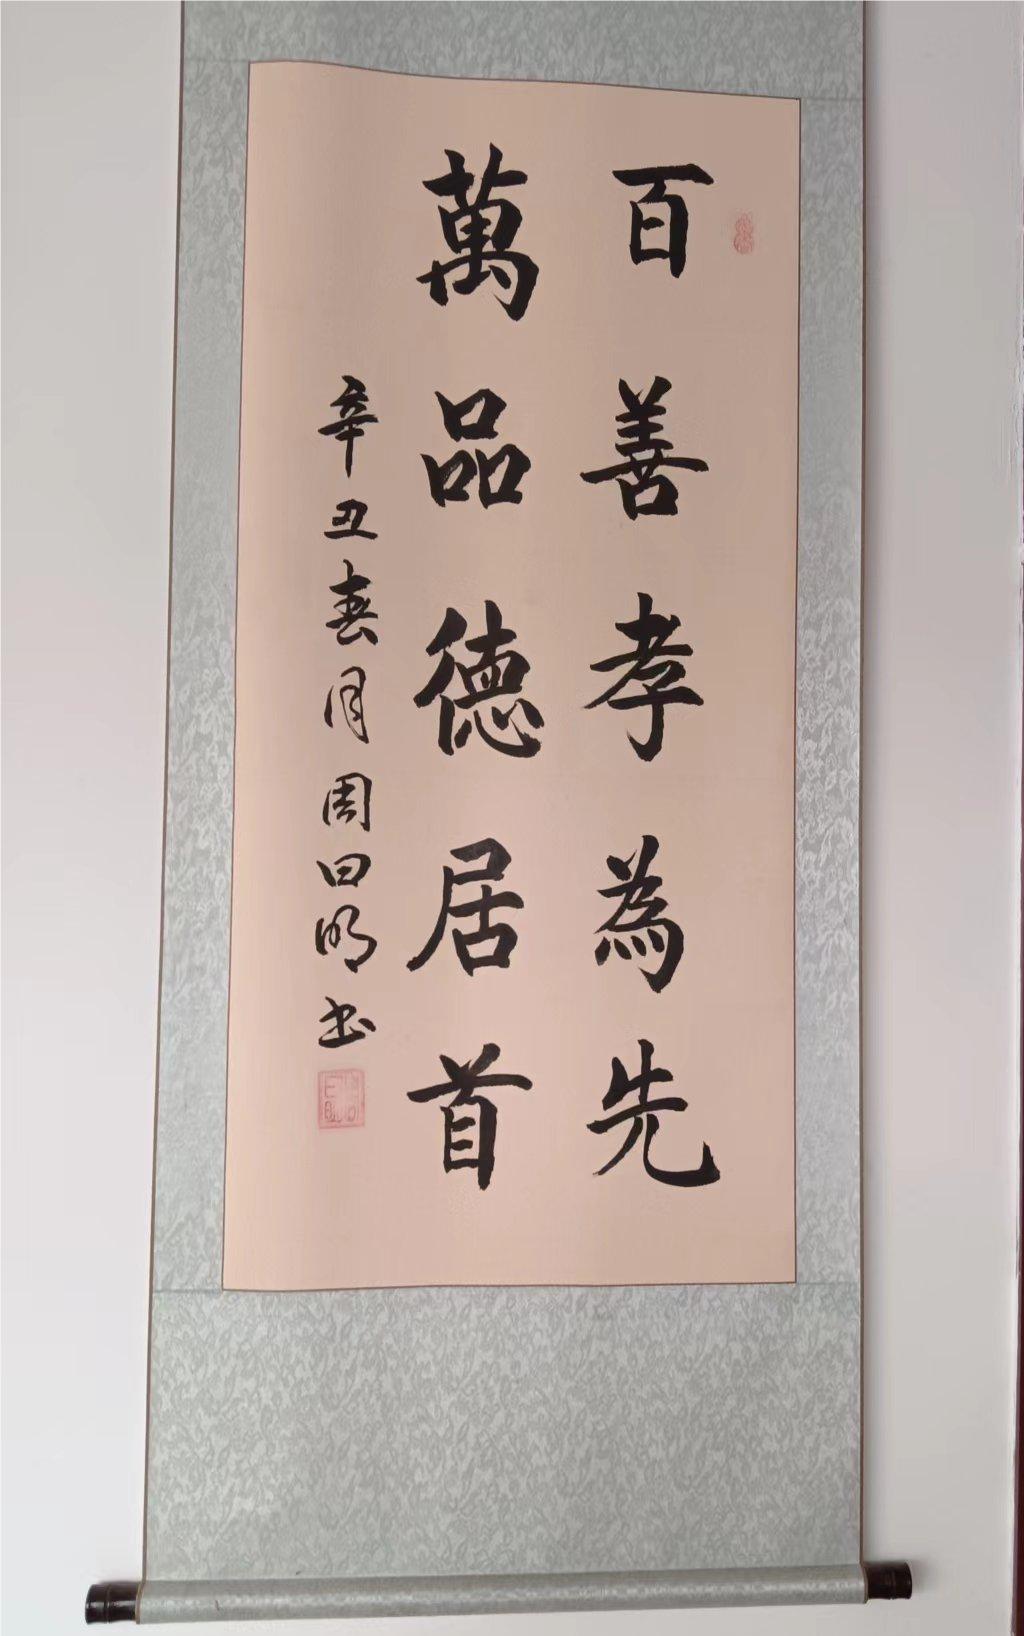 百善孝為先
萬品德居首
辛丑春月周曰明书